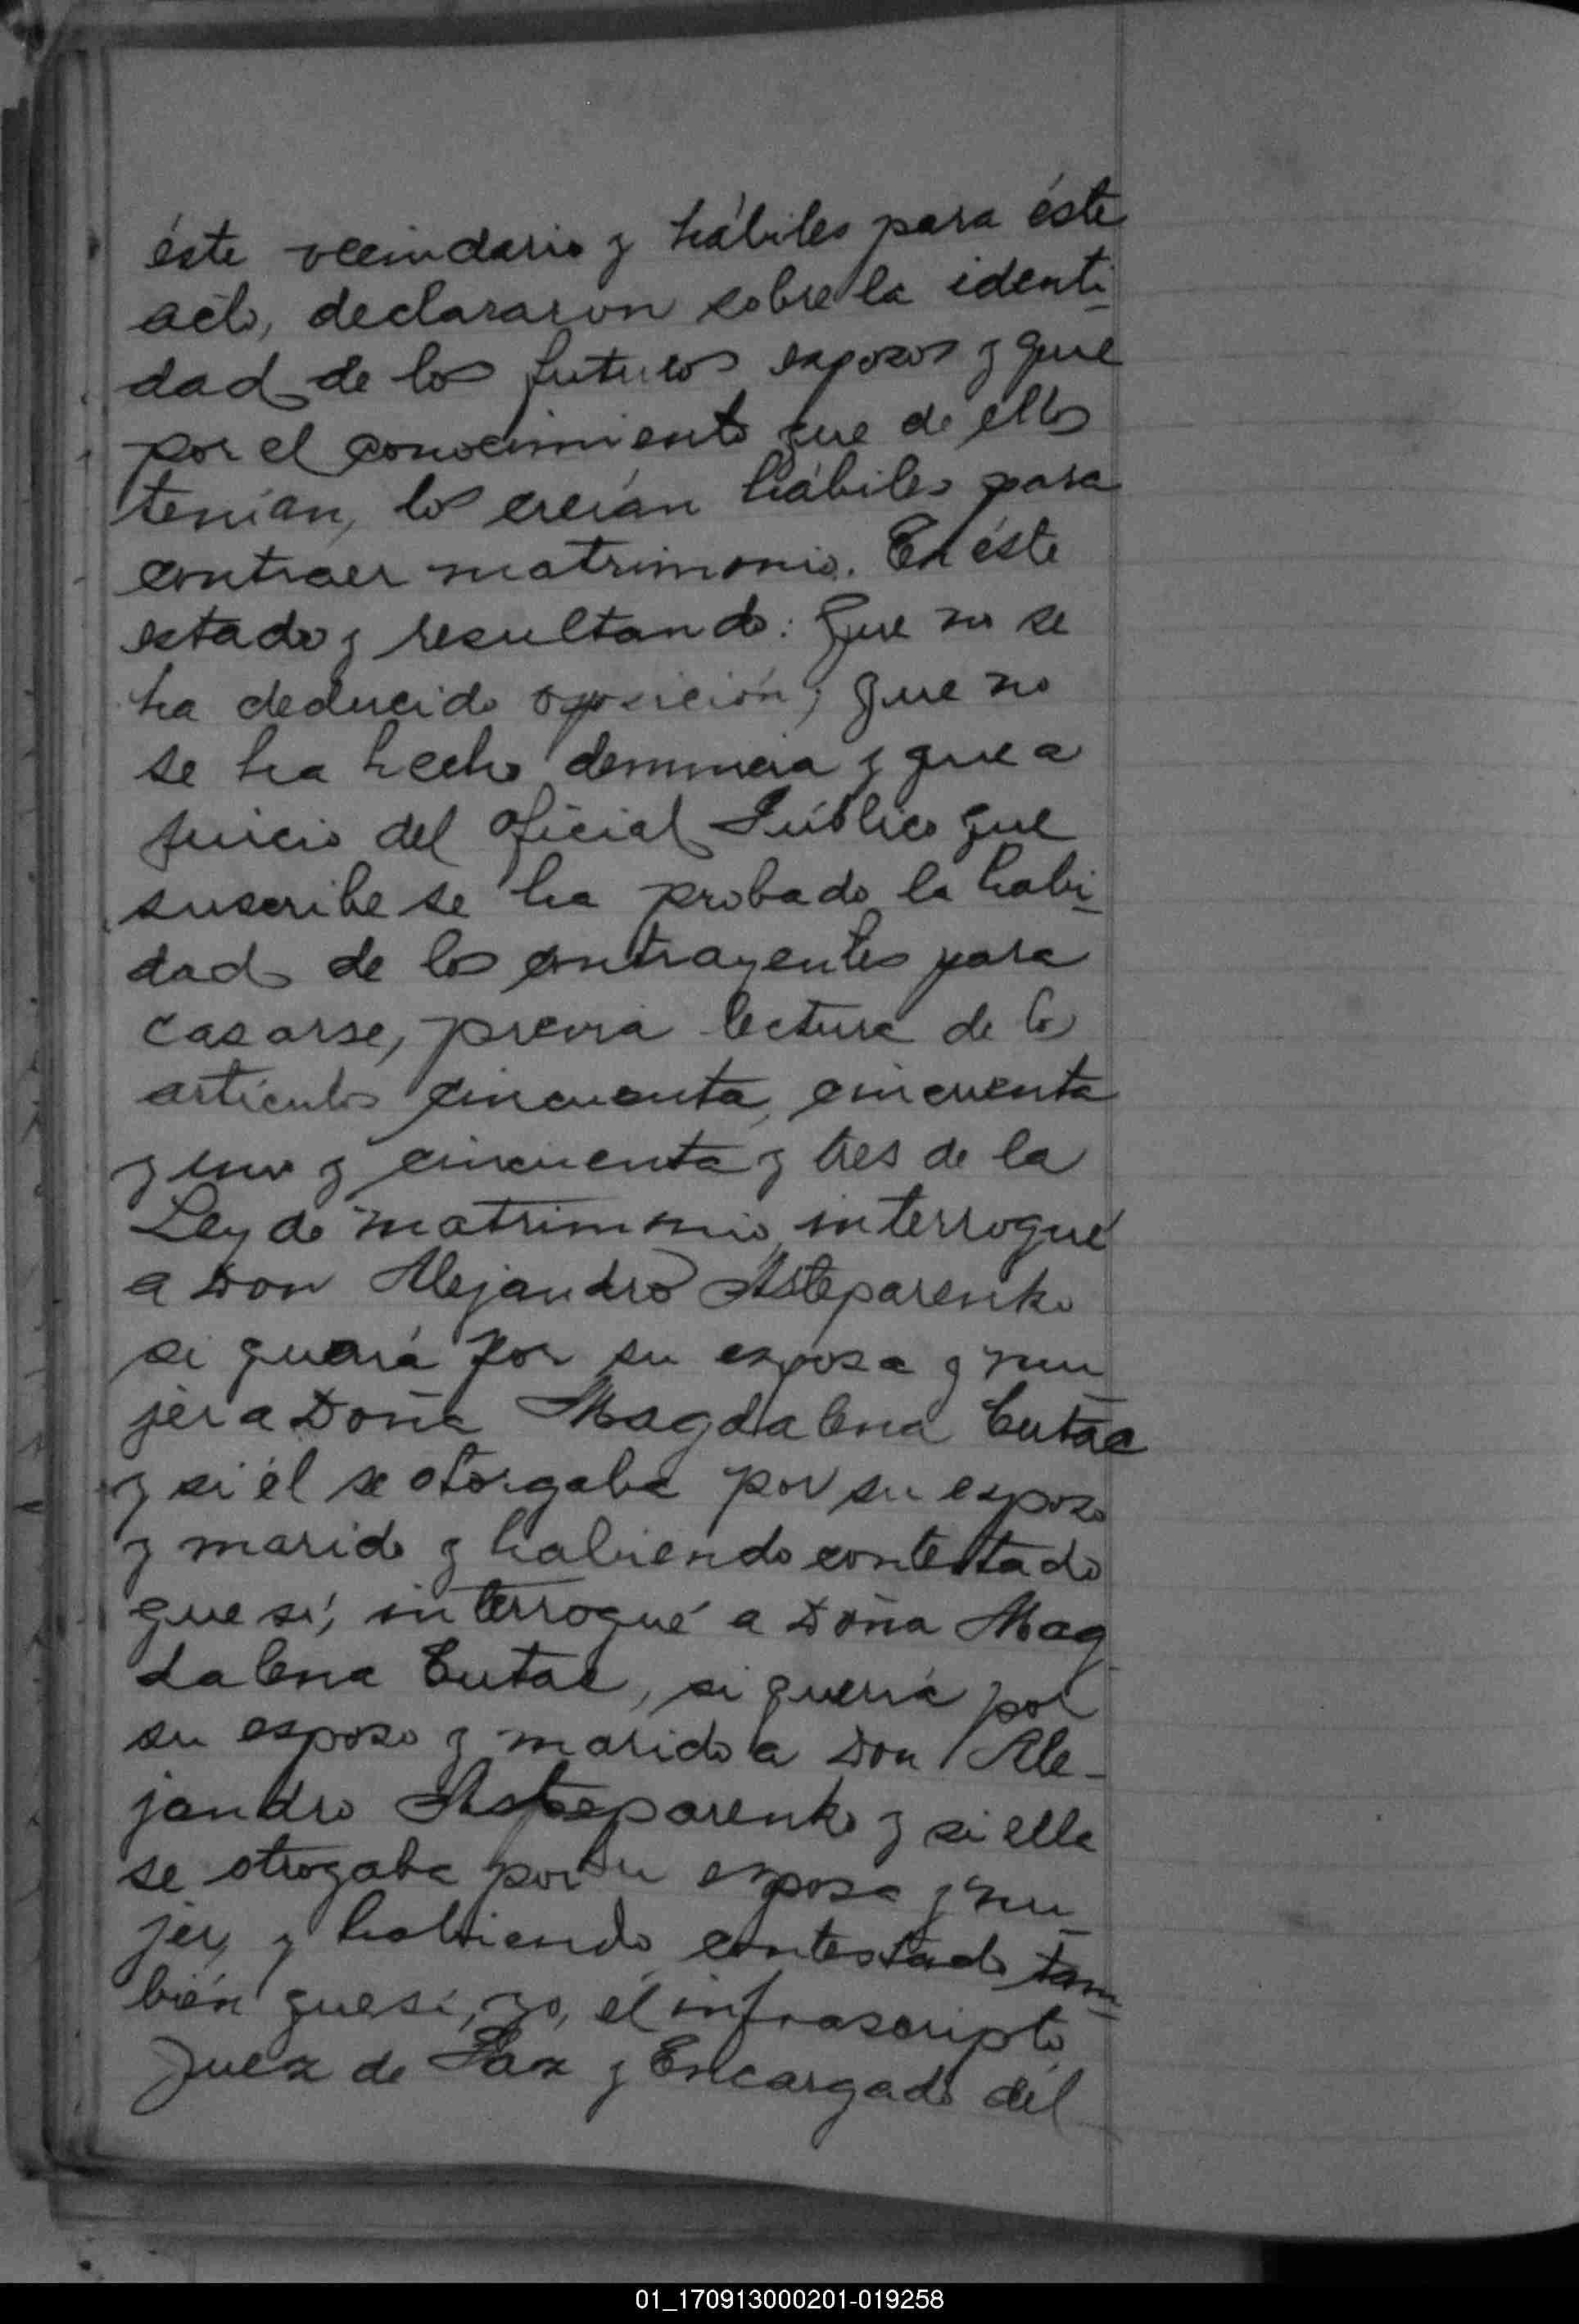 éste vecindario y hábiles para éste
acto, declararon sobre la identi-
dad de los futuros esposos y que
por el conocimiento que de ellos
tenían, los creían hábiles para
contraer matrimonio. En éste
estado y resultando: Que no se
ha deducido oposición, que no
se ha hecho denuncia y que a
juicio del oficial Público que
suscribe se ha probado la habi-
dad de los contrayentes para
casarse, previa lectura de los
artículos cincuenta, cincuenta
y uno y cincuenta y tres de la
Ley de matrimonio, interrogué
a Don Alejandro Asteparenko
si quería por su esposa y mu-
jer a Doña Magdalena Eutac
y si él se otorgaba por su esposo
y marido y habiendo contestado
que sí, interrogué a Doña Mag
dalena Eutac, si quería por
su esposo y marido a Don Ale-
jandro Asteparenko y si ella
se otrogaba por su esposa y mu-
jer, y habiendo contestado tam-
bién que sí, yo, el infrascripto
Juez de Paz y Encargado del
01_170913000201-019258